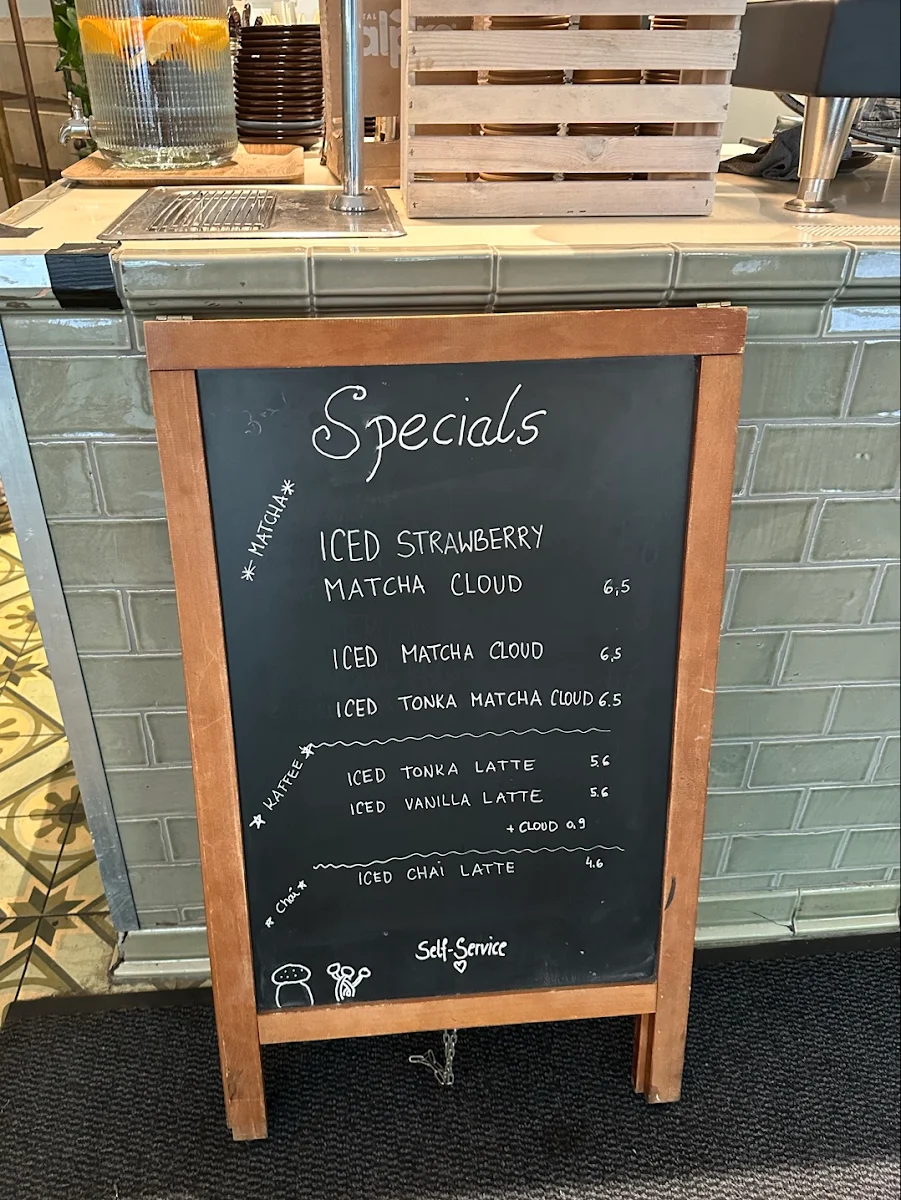 Specials
*MATCHA*
ICED STRAWBERRY
MATCHA CLOUD 6,5
ICED MATCHA CLOUD 6,5
ICED TONKA MATCHA CLOUD 6.5
*KAFFEE*
ICED TONKA LATTE 5.6
ICED VANILLA LATTE 5.6
+ CLOUD 0.9
*Chai*
ICED CHAI LATTE 4.6
Self-Service